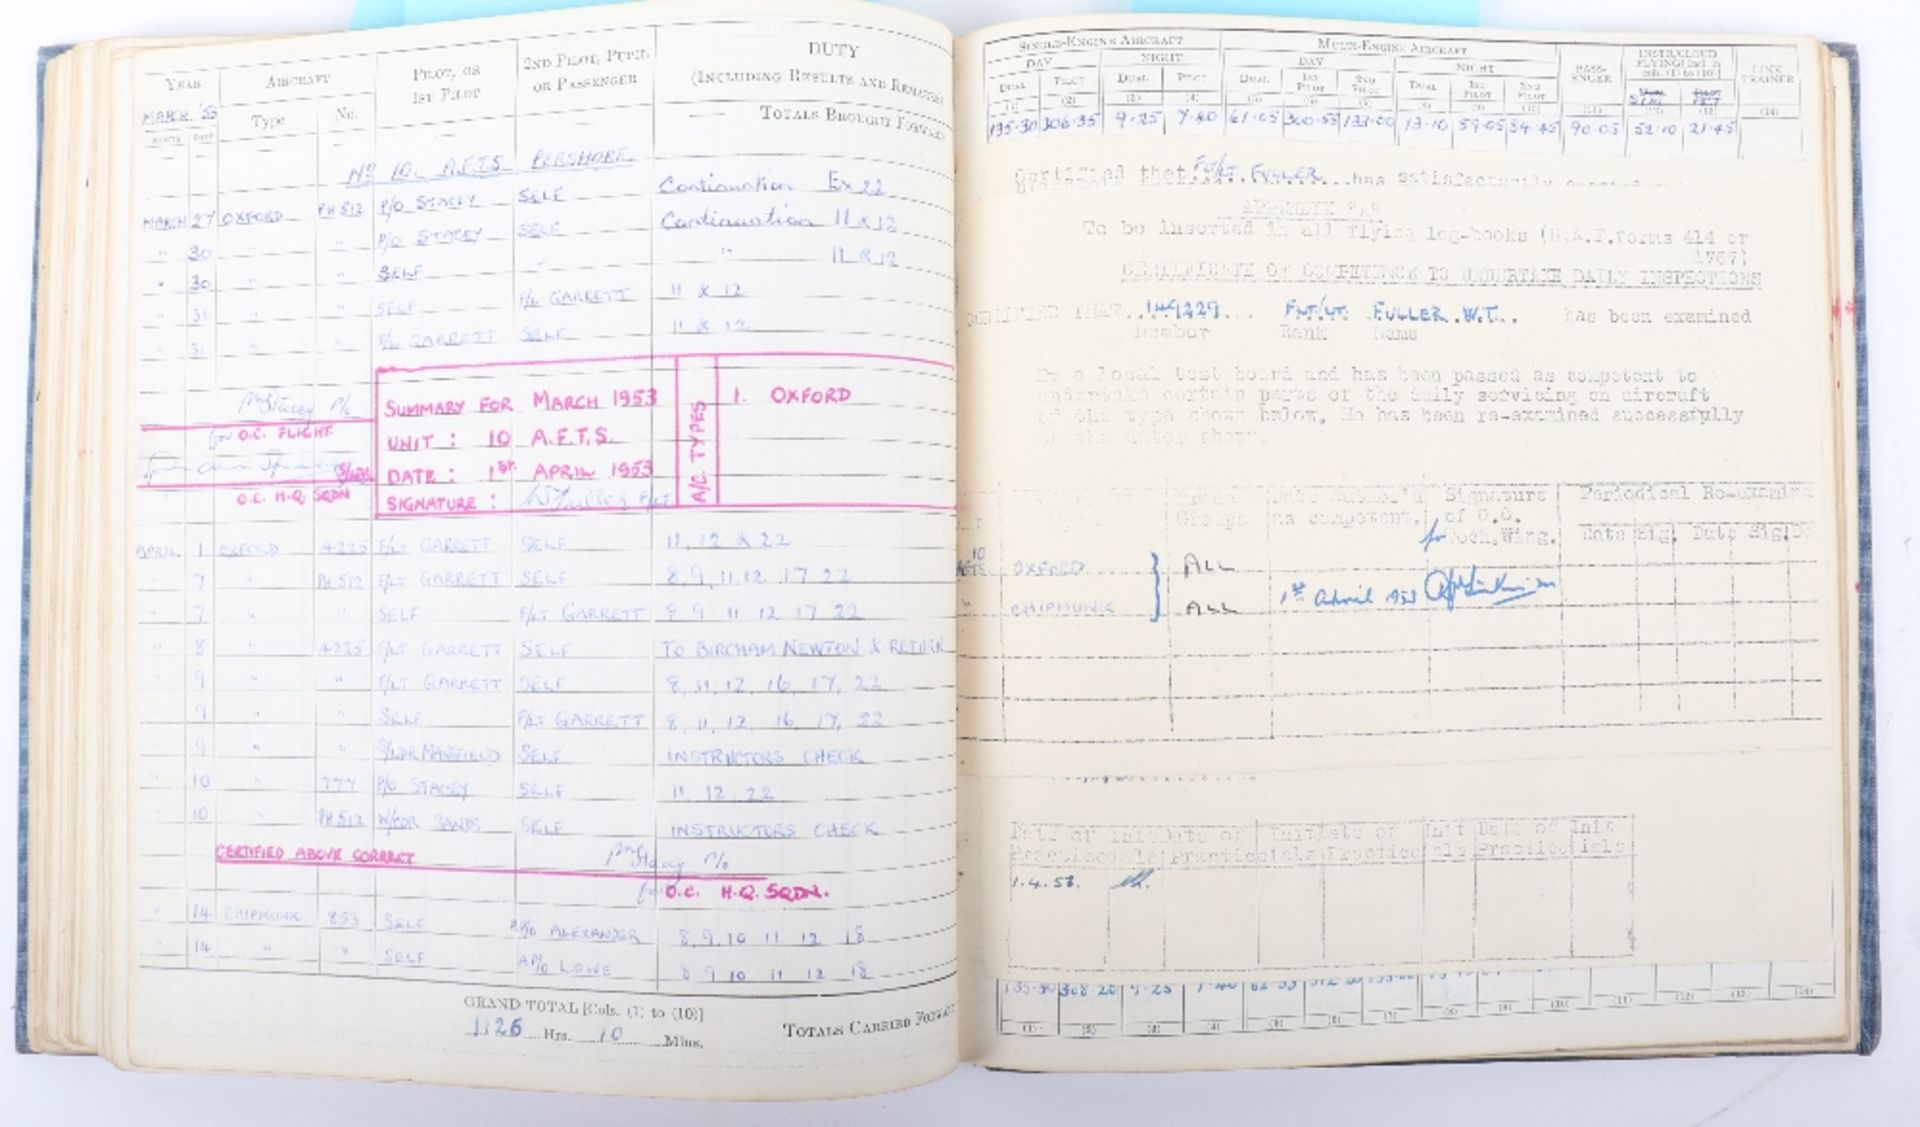 YEAR AIRCRAFT PILOT, OR 1ST PILOT 2ND PILOT, PUPIL OR PASSENGER DUTY (INCLUDING RESULTS AND REMARKS)
MARCH '53 Type No.
MONTH DATE — — — — — TOTALS BROUGHT FORWARD
No 10. A.F.T.S. PERSHORE.
MARCH 27 OXFORD PH512 P/O STACEY SELF Continuation Ex 22
" 30 " " P/O STACEY SELF Continuation 11 & 12
" 30 " " SELF - " 11 & 12
" 31 " " SELF F/L GARRETT 11 & 12
" 31 " " F/L GARRETT SELF 11 & 12
Stacey P/o
for O.C. FLIGHT.
S/LDR
O.C. H.Q. SQDN
SUMMARY FOR MARCH 1953
UNIT : 10 A.F.T.S.
DATE : 1ST. APRIL 1953
SIGNATURE : W Fuller F/Lt
A/C TYPES
1. OXFORD
APRIL 1 OXFORD 4225 F/LT GARRETT SELF 11, 12 & 22
" 7 " PH 512 F/LT GARRETT SELF 8, 9, 11, 12, 17 22
" 7 " " SELF F/LT GARRETT 8 9 11 12 17 22
" 8 " 4225 F/LT GARRETT SELF TO BIRCHAM NEWTON & RETURN
" 9 " " F/LT GARRETT SELF 8, 11, 12, 16, 17, 22
" 9 " " SELF F/LT GARRETT 8, 11, 12, 16, 17, 22
" 9 " " S/LDR MANSFIELD SELF INSTRUCTORS CHECK
" 10 " 777 P/O STACEY SELF 11, 12, 22
" 10 " PH512 W/CDR SANDS SELF INSTRUCTORS CHECK
CERTIFIED ABOVE CORRECT Stacey P/o
for O.C. H.Q. SQDN.
" 14 CHIPMUNK 853 SELF A.P/O ALEXANDER 8, 9, 10 11 12 18
" 14 " " SELF A.P/O LOWE 8 9 10 11 12 18
GRAND TOTAL [Cols. (1) to (10)]
1126 Hrs. 10 Mins.
TOTALS CARRIED FORWARD
SINGLE-ENGINE AIRCRAFT MULTI-ENGINE AIRCRAFT PASS-ENGER INSTR/CLOUD FLYING [Incl. in cols. (1) to (10)] LINK TRAINER
DAY NIGHT DAY NIGHT
DUAL PILOT DUAL PILOT DUAL 1ST PILOT 2ND PILOT DUAL 1ST PILOT 2ND PILOT
(1) (2) (3) (4) (5) (6) (7) (8) (9) (10) (11) (12) (13) (14)
135.30 306.35 9.25 7.40 61.05 300.55 133.00 13.10 59.05 34.45 90.05 52.10 21.45
Certified that Flt/Lt. FULLER has satisfactorily
APPENDIX "A"
To be inserted in all flying log-books (R.A.F.forms 414 or
1767)
CERTIFICATE OF COMPETENCE TO UNDERTAKE DAILY INSPECTIONS
CERTIFIED THAT..149229... FLT/LT. FULLER W.T... has been examined
Number Rank Name
By a local test board and has been passed as competent to
undertake certain parts of the daily servicing on aircraft
of the type shown below. He has been re-examined successfully
on the dates shown.
Type Groups Date Author'd as competent. Signature of C.O. Tech.Wing. Periodical Re-examina
Date Sig. Date Sig. Da
10 AFTS. OXFORD } ALL
" CHIPMUNK } ALL 1st April 1953
Date of Practice Initials Date of Practice Initials Date of Practice Initials Date of Practice Initials
1.4.53.
135.30 308.20 9.25 7.40
(1) (2) (3) (4) (5) (6) (7) (8) (9) (10) (11) (12) (13) (14)